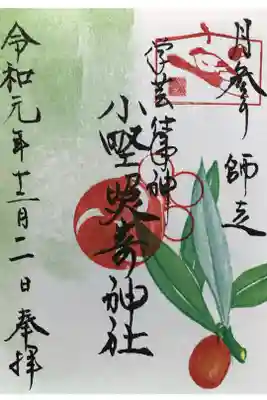 月参り 師走
学芸 守護神
小野照崎神社
令和元年十二月二日 奉拝